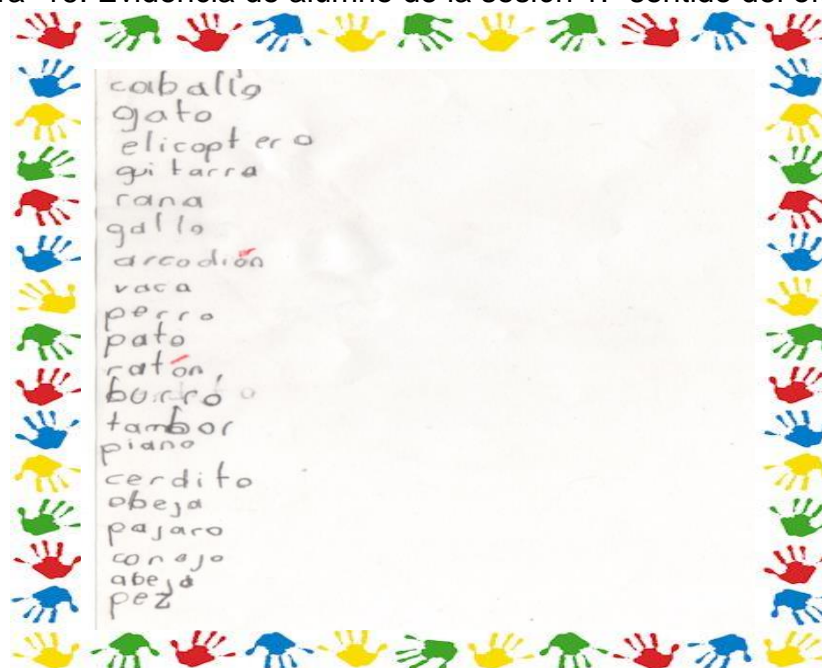 Evidencia de alumno de la sesión
caballo
gato
elicoptero
guitarra
rana
gallo
arcodión
vaca
perro
pato
ratón,
burro
tambor
piano
cerdito
obeja
pajaro
conejo
abeja
pez